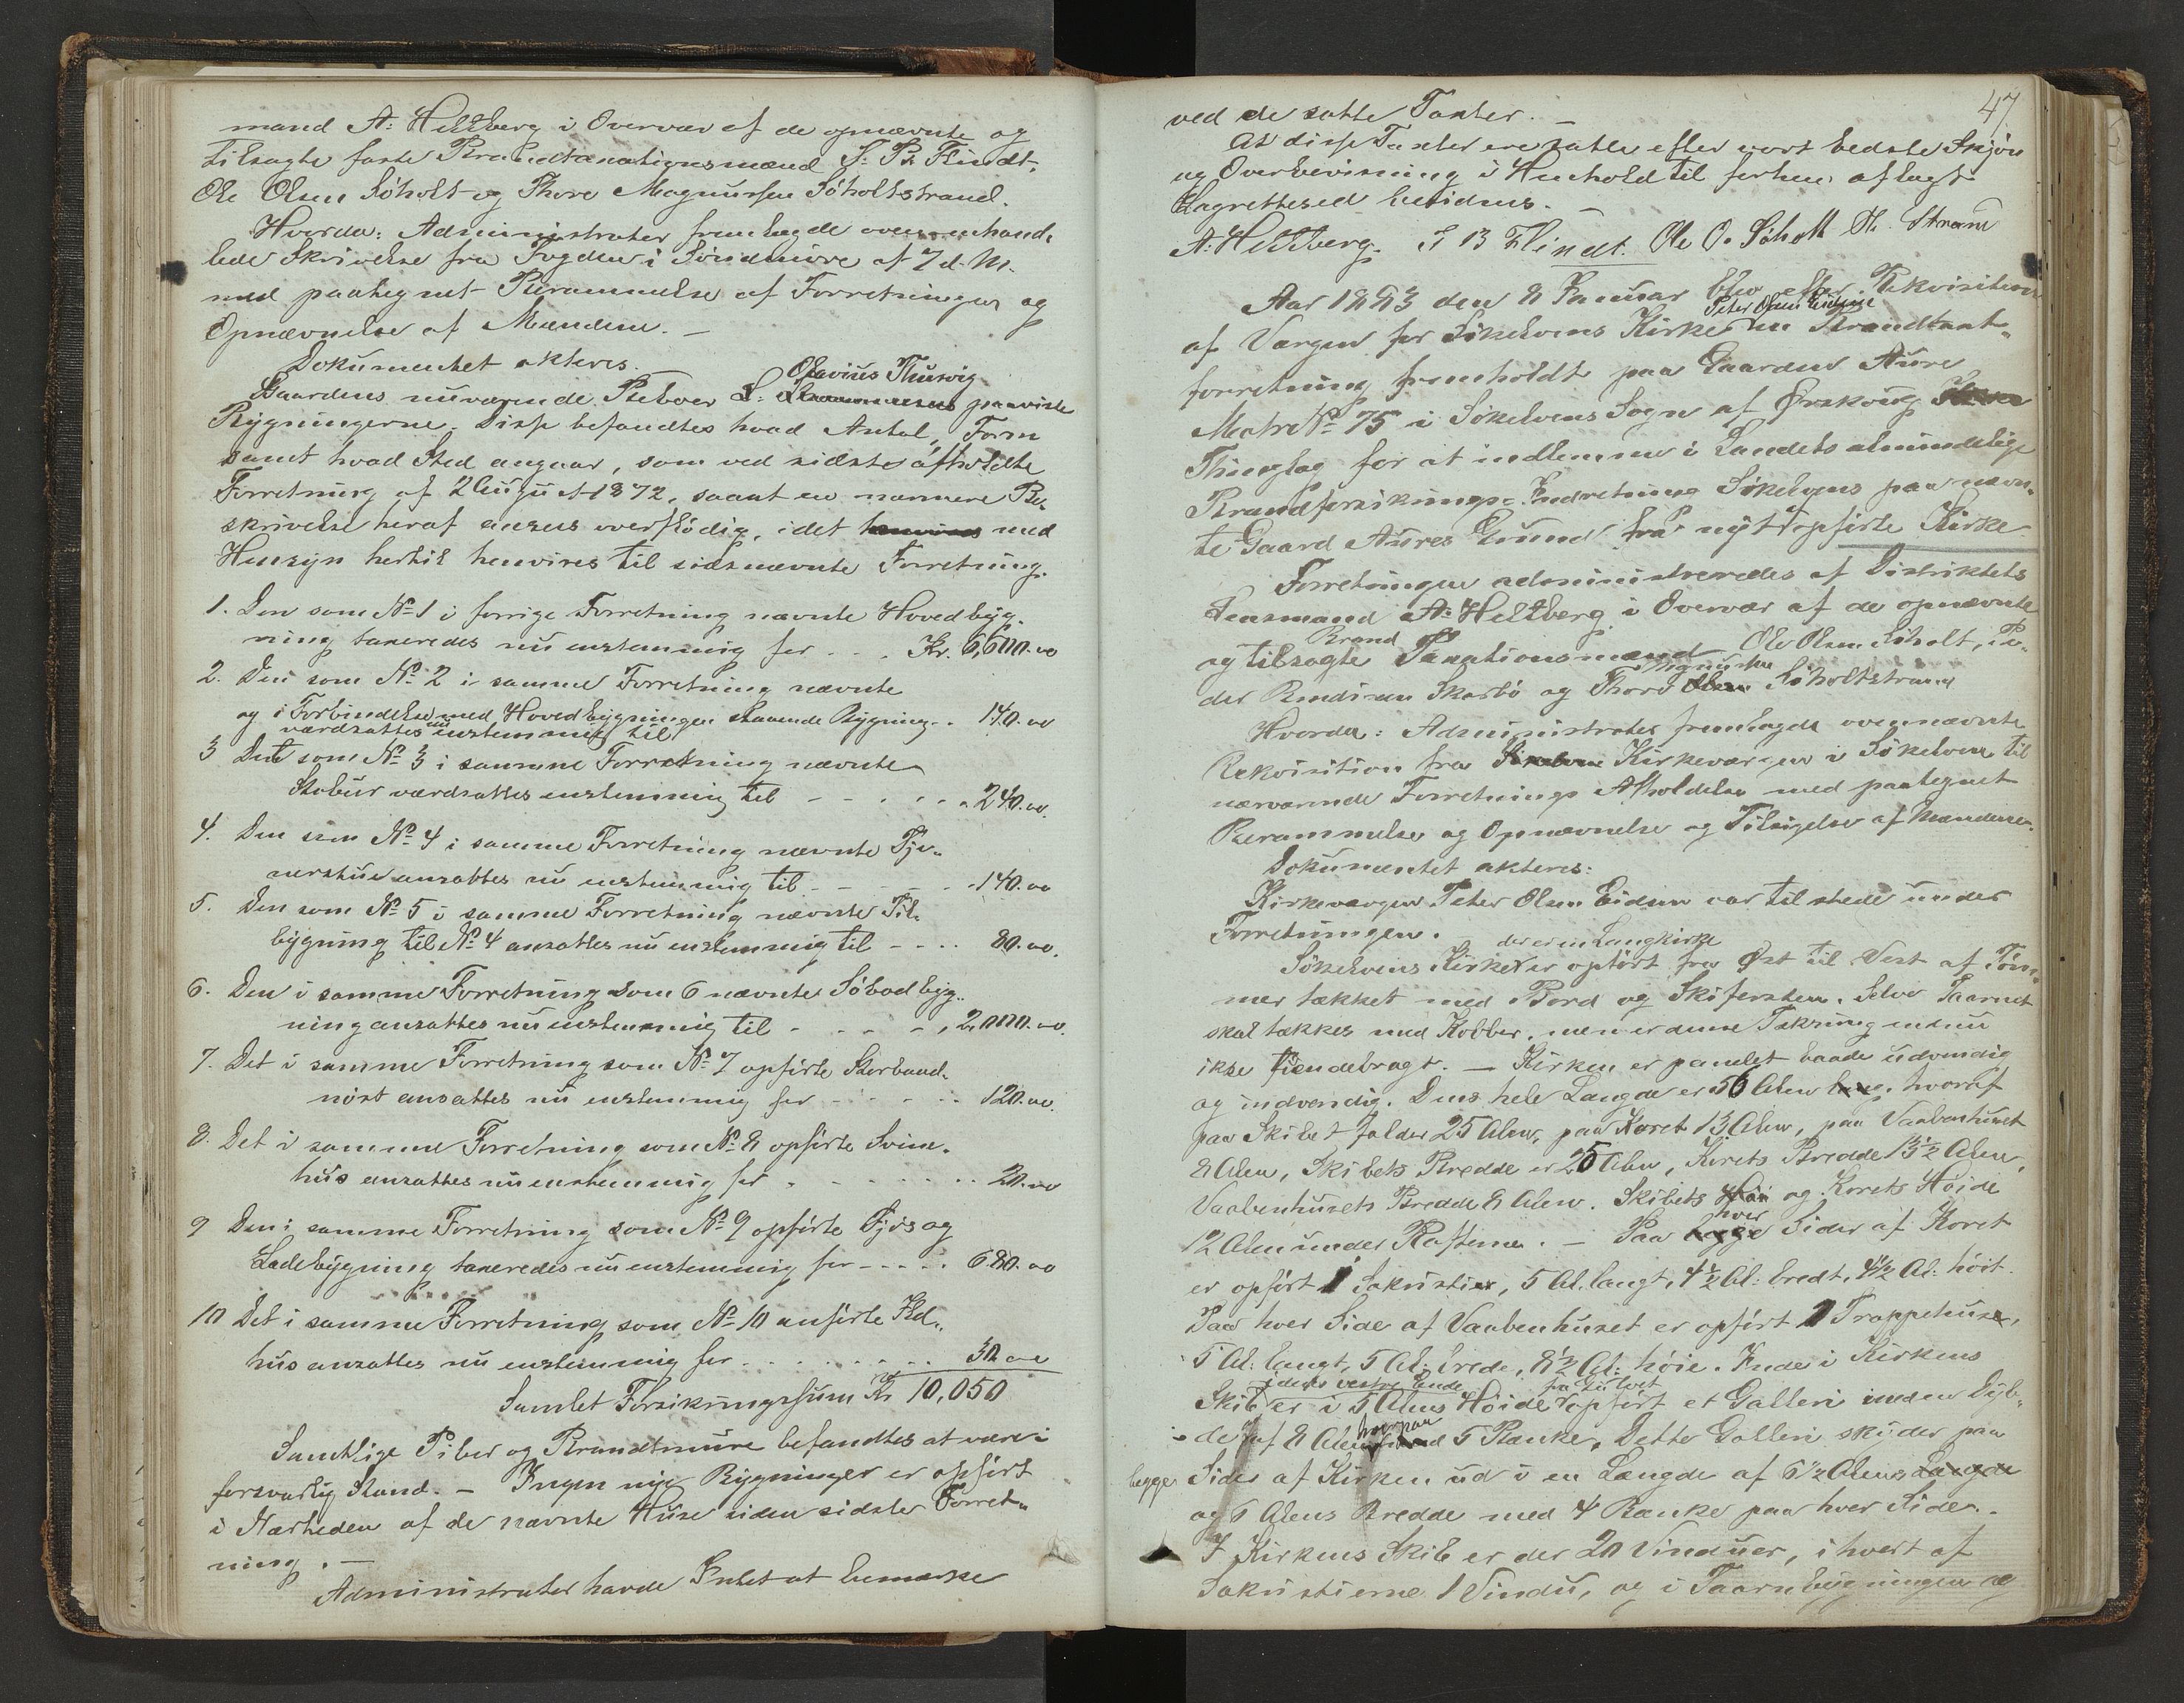 mand A: Heltberg i Overvær af de opnævnte og
tilsagte faste Brandtaxationsmænd S: B: Flindt,
Ole Olsen Söholt og Thore Magnussen Söholtstrand.
Hvorda: Administrator fremlagde ovenomhand-
lede Skrivelse fra Fogden i Söndmöre af 7 d. M.
med paategnet Berammelse af Forretningen og
Opnævnelse af Mændene. —
Dokumentet akteres.
Olavius Thusvig
Gaardens nuværende Beboer L: paaviste
Bygningerne. Disse befandtes hvad Antal, Form
samt hvad Sted angaar, som ved sidste afholdte
Forretning af 2 August 1872, saaat en nærmere Be-
skrivelse heraf ansees overflödig, idet henvises med
Hensyn hertil henvises til sidsnævnte Forretning.
1. Den som No 1 i forrige Forretning nævnte Hovedbyg-
ning taxeredes nu enstemmig for . . . Kr. 6,600.00
2. Den som No 2 i samme Forretning nævnte
og i Forbindelse med Hovedbygningen staaende Bygning . . 140.00
værdsattes nu enstemmig til
3 Det som No 3 i samme Forretning nævnte
Stabur værdsattes enstemmig til - - . . . . 240.00.
4. Den som No 4 i samme Forretning nævnte Tje-
nerstue ansattes nu enstemmig til - - - - - 140.00
5. Den som No 5 i samme Forretning nævnte Til-
bygning til No 4 ansattes nu enstemmig til - - . . 80.00.
6. Den i samme Forretning som 6 nævnte Söbodbyg-
ning ansattes nu enstemmig til - . . . - - , 2,000.00.
7. Det i samme Forretning som No 7 opförte Storbaad-
nöst ansattes nu enstemmig for - . . - . . 120.00.
8. Det i samme Forretning som No 8 opförte Svine-
hus ansattes nu enstemmig for . - . . . . . 20.00
9 Den i samme Forretning som No 9 opförte Fjös og
Ladebygning taxeredes nu enstemmig for - - . . . 680.00
10 Det i samme Forretning som No 10 anförte Ild-
hus ansattes nu enstemmig for . . . . . . . . 50 00
Samlet Forsikringssum Kr 10,050
Samtlige Piber og Brandmure befandtes at være i
forsvarlig Stand. — Ingen nye Bygninger er opfört
i Nærheden af de nævnte Huse siden sidste Forret-
ning. —
Administrator havde Intet at bemærke
47
ved de satte Taxter. —
At disse Taxter ere satte efter vort bedste Skjön
og Overbevisning i Henhold til forhen aflagt
Lagrettesed bevidnes. —
A: Heltberg. S B Flindt. Ole O. Söholt Th. Strand
Aar 1883 den 8 Januar blev efter Rekvisition
Peter Olsen Eidsen
af Værgen for Sökelvens Kirke en Brandtaxt-
forretning fremholdt paa Gaarden Aure
Matr No 75 i Sökelvens Sogn af Örskoug
Thinglag for at indlemme i Landets almindelige
Brandforsikrings-Indretning Sökelvens paa nævn-
te Gaard Aures Grund fra nyt opförte Kirke.
Forretningen administreredes af Distriktets
Lensmand A: Heltberg i Overvær af de opnævnte
Brand
og tilsagte Taxationsmænd Ole Olsen Söholt, Pe-
Magnussen
der Knudsen Skarbö og Thore Olsen Söholtstrand
Hvorda: Administrator fremlagde ovennævnte
Rekvisition fra Kirkeværgen i Sökelven til
nærværende Forretnings Afholdelse med paategnet
Berammelse og Opnævnelse og Tilsigelse af Mændene.
Dokumentet akteres:
Kirkeværgen Peter Olsen Eidsen var tilstede under
Forretningen.
der er en Langkirke
Sökelvens Kirke er opfört fra Öst til Vest af Töm-
mer tækket med Bord og Skifersten. Selve Taarnet
skal tækkes med Kobber, men er denne Tækning endnu
ikke tilendebragt. — Kirken er panelet baade udvendig
og indvendig. Dens hele Længde er 56 Alen lang, hvoraf
paa Skibet falder 25 Alen, paa Koret 13 Alen, paa Vaabenhuset
8 Alen, Skibets Bredde er 25 Alen, Korets Bredde 13½ Alen,
Vaabenhusets Bredde 8 Alen. Skibets Höi og Korets Höide
hver
12 Alen under Rafterne. — Paa begge Sider af Koret
er opfört 1 Sakristier, 5 Al. langt, 4½ Al: bredt, 4½ Al: höit.
Paa hver Side af Vaabenhuset er opfört 1 Trappehuse,
5 Al: langt, 5 Al: brede, 8½ Al: höie. Inde i Kirkens
i dens vestre Ende fra Gulvet
Skib er i 5 Alens Höide opfört et Galleri med en Dyb-
hvorpaa
de af 8 Alen 5 Bænke. Dette Galleri skyder paa
begge Sider af Kirken ud i en Længde af 6½ Alens Længde
og 6 Alens Bredde med 4 Bænke paa hver Side.
I Kirkens Skib er der 20 Vinduer, i hvert af
Sakristierne 1 Vindu, og i Taarnbygningen og